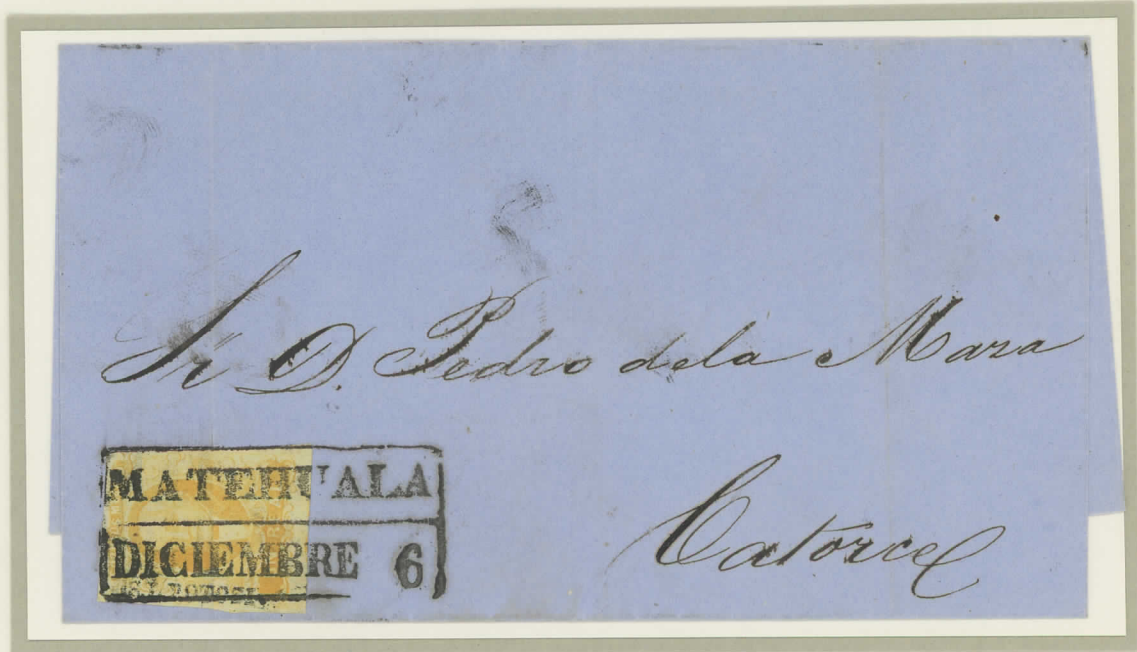 Sr D. Pedro de la Maza
Catorce
MATEHUALA
DICIEMBRE 6